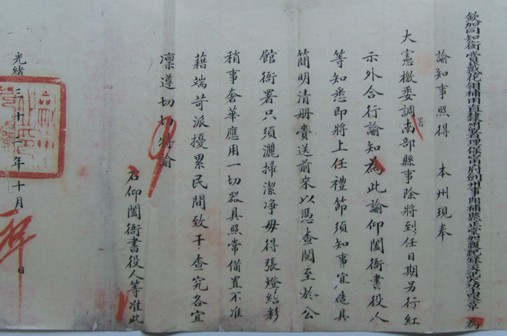 欽加同知銜賞戴花翎補用直隸州署理保甯府劍州事
諭知事照得 本州現奉
大憲檄委調南部縣事除將到任日期另行紅
示外合行諭知為此諭仰閤衙書役人
等知悉即將上任禮節須知事宜造具
簡明清冊賫送前來以憑查閱至於公
館衙署只須灑掃潔凈毋得張燈結彩
稍事奢華應用一切器具照常備置不准
藉端苛派擾累民間致干查究各宜
凜遵切切特諭
右仰閤衙書役人等准此
光緒三十年十月 日